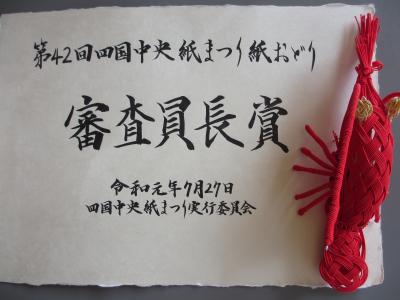 第42回四国中央紙まつり紙おどり
審査員長賞
令和元年7月27日
四国中央紙まつり実行委員会